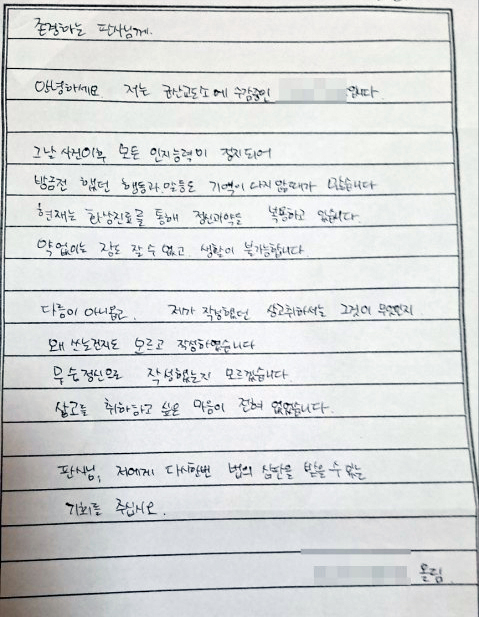 존경하는 판사님께.
안녕하세요 저는 군산교도소에 수감중인 입니다.
그날 사건이후 모든 인지능력이 정지되어
방금전 했던 행동과 말들도 기억이 나지 않을때가 많습니다
현재는 화상진료를 통해 정신과약을 복용하고 있습니다.
약 없이는 잠도 잘 수 없고 생활이 불가능합니다
다름이 아니옵고 제가 작성했던 상고취하서는 그것이 무엇인지
왜 쓰는건지도 모르고 작성하였습니다
무슨정신으로 작성했는지 모르겠습니다.
상고를 취하하고 싶은 마음이 전혀 없었습니다.
판사님, 저에게 다시한번 법의 심판을 받을 수 있는
기회를 주십시오.
올림.